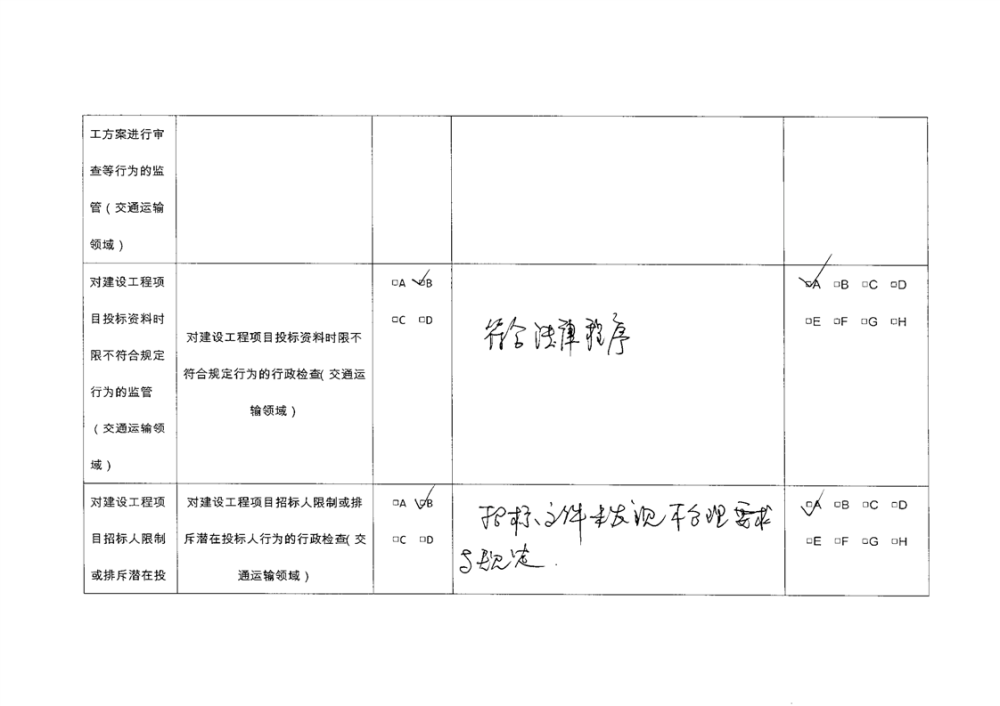 工方案进行审
查等行为的监
管（交通运输
领域）
对建设工程项
目投标资料时
限不符合规定
行为的监管
（交通运输领
域）
对建设工程项目投标资料时限不
符合规定行为的行政检查（交通运
输领域）
□A □B
□C □D
符合法律程序
□A □B □C □D
□E □F □G □H
对建设工程项
目招标人限制
或排斥潜在投
对建设工程项目招标人限制或排
斥潜在投标人行为的行政检查（交
通运输领域）
□A □B
□C □D
招标文件未发现不合理要求
与规定.
□A □B □C □D
□E □F □G □H